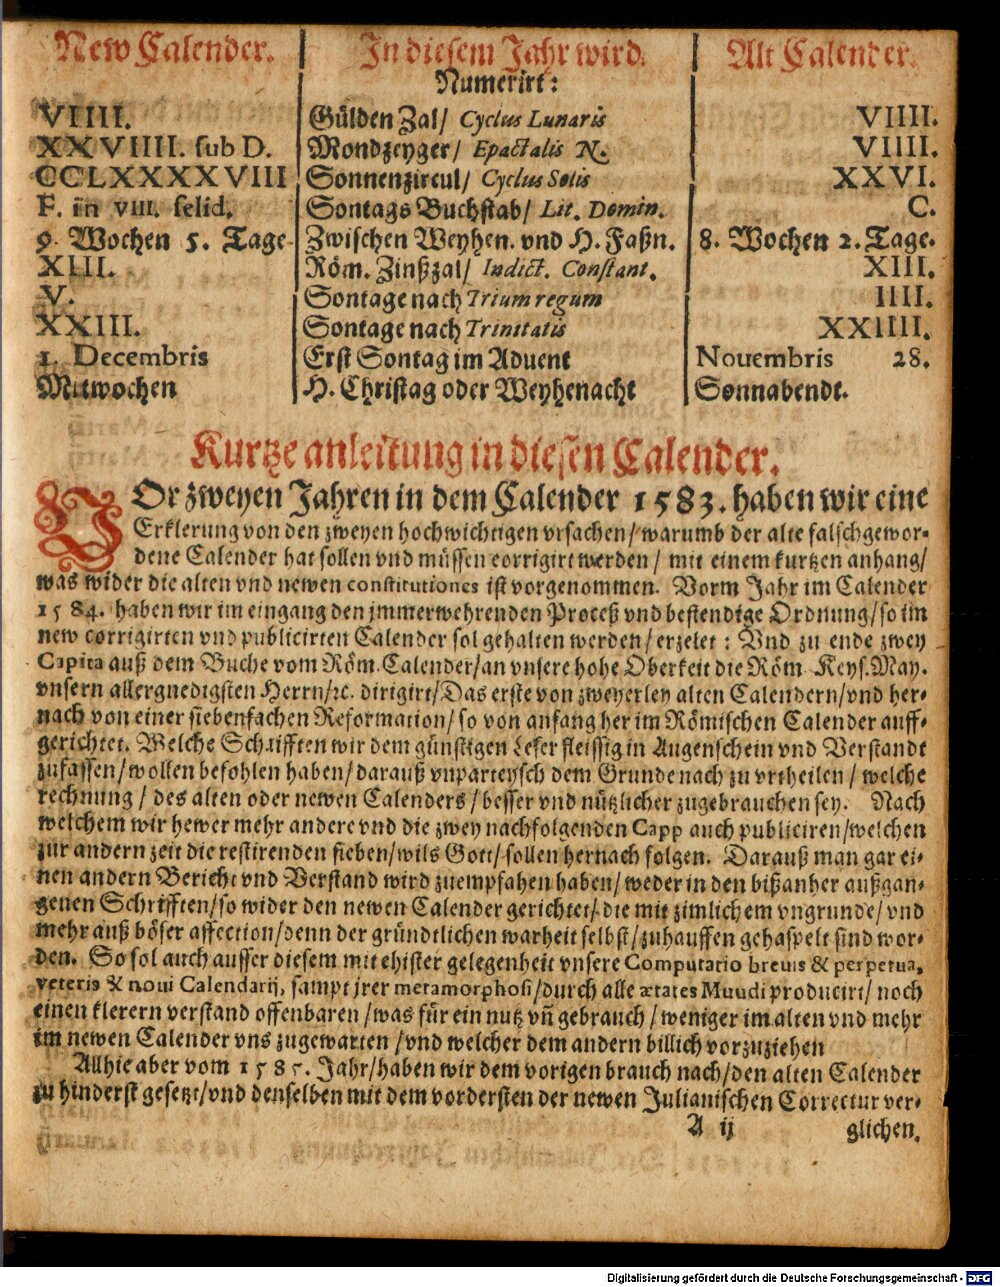 New Calender. In diesem Jahr wird. Alt Calender.
Numerirt:
VIIII. Gülden Zal/ Cyclus Lunaris VIIII.
XXVIIII. sub D. Mondzeyger/ Epactalis N. VIIII.
CCLXXXXVIII Sonnenzircul/ Cyclus Solis XXVI.
F. in VIII. selid. Sontags Buchstab/ Lit. Domin. C.
9. Wochen 5. Tage Zwischen Weyhen. vnd H. Faßn. 8. Wochen 2. Tage.
XIII. Röm. Zinßzal/ Indict. Constant. XIII.
V. Sontage nach Trium regum IIII.
XXIII. Sontage nach Trinitatis XXIIII.
1. Decembris Erst Sontag im Aduent Nouembris 28.
Mitwochen H. Christag oder Weyhenacht Sonnabendt.
Kurtze anleitung in diesen Calender.
VOr zweyen Jahren in dem Calender 1583. haben wir eine
Erklerung von den zweyen hochwichtigen vrsachen/ warumb der alte falschgewor-
dene Calender hat sollen vnd müssen corrigirt werden/ mit einem kurtzen anhang/
was wider die alten vnd newen constitutiones ist vorgenommen. Vorm Jahr im Calender
1584. haben wir im eingang den jmmerwehrenden Proceß vnd bestendige Ordnung/ so im
new corrigirten vnd publicirten Calender sol gehalten werden/ erzelet: Vnd zu ende zwey
Capita auß dem Buche vom Röm. Calender/ an vnsere hohe Oberkeit die Röm. Keys. May.
vnsern allergnedigsten Herrn/ꝛc. dirigirt/ Das erste von zweyerley alten Calendern/ vnd her-
nach von einer siebenfachen Reformation/ so von anfang her im Römischen Calender auff-
gerichtet. Welche Schrifften wir dem günstigen Leser fleissig in Augenschein vnd Verstandt
zufassen/ wollen befohlen haben/ darauß vnparteysch dem Grunde nach zu vrtheilen/ welche
rechnung/ des alten oder newen Calenders/ besser vnd nützlicher zugebrauchen sey. Nach
welchem wir hewer mehr andere vnd die zwey nachfolgenden Capp auch publiciren/ welchen
zur andern zeit die restirenden sieben/ wils Gott/ sollen hernach folgen. Darauß man gar ei-
nen andern Bericht vnd Verstand wird zuempfahen haben/ weder in den bißanher außgan-
genen Schrifften/ so wider den newen Calender gerichtet/ die mit zimlichem vngrunde/ vnd
mehr auß böser affection/ denn der gründtlichen warheit selbst/ zuhauffen gehaspelt sind wor-
den. So sol auch ausser diesem mit ehister gelegenheit vnsere Computatio breuis & perpetua,
veteris & noui Calendarij, sampt jrer metamorphosi/ durch alle ætates Mundi producirt/ noch
einen klerern verstand offenbaren/ was für ein nutz vñ gebrauch/ weniger im alten vnd mehr
im newen Calender vns zugewarten/ vnd welcher dem andern billich vorzuziehen
Allhie aber vom 1585. Jahr/ haben wir dem vorigen brauch nach/ den alten Calender
zu hinderst gesetzt/ vnd denselben mit dem vordersten der newen Julianischen Correctur ver-
A ij glichen.
Digitalisierung gefördert durch die Deutsche Forschungsgemeinschaft - DFG